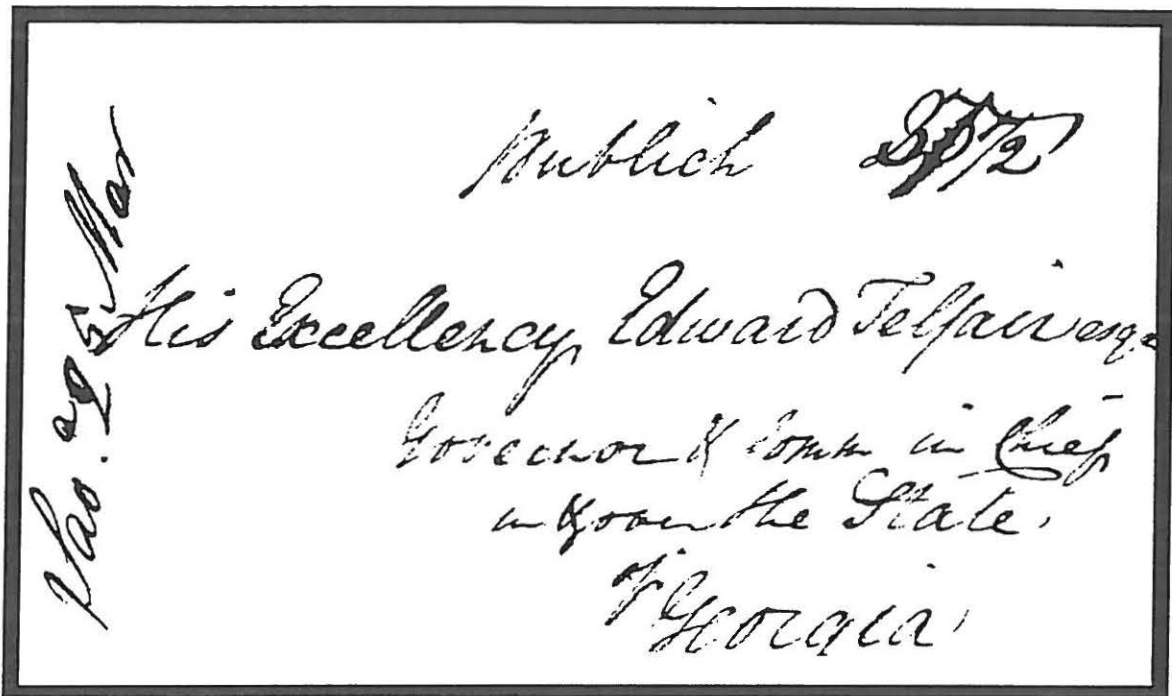 Publick
His Excellency Edward Telfair esqr
Governor & Comm in Chief
in & over the State
of Georgia
Mar